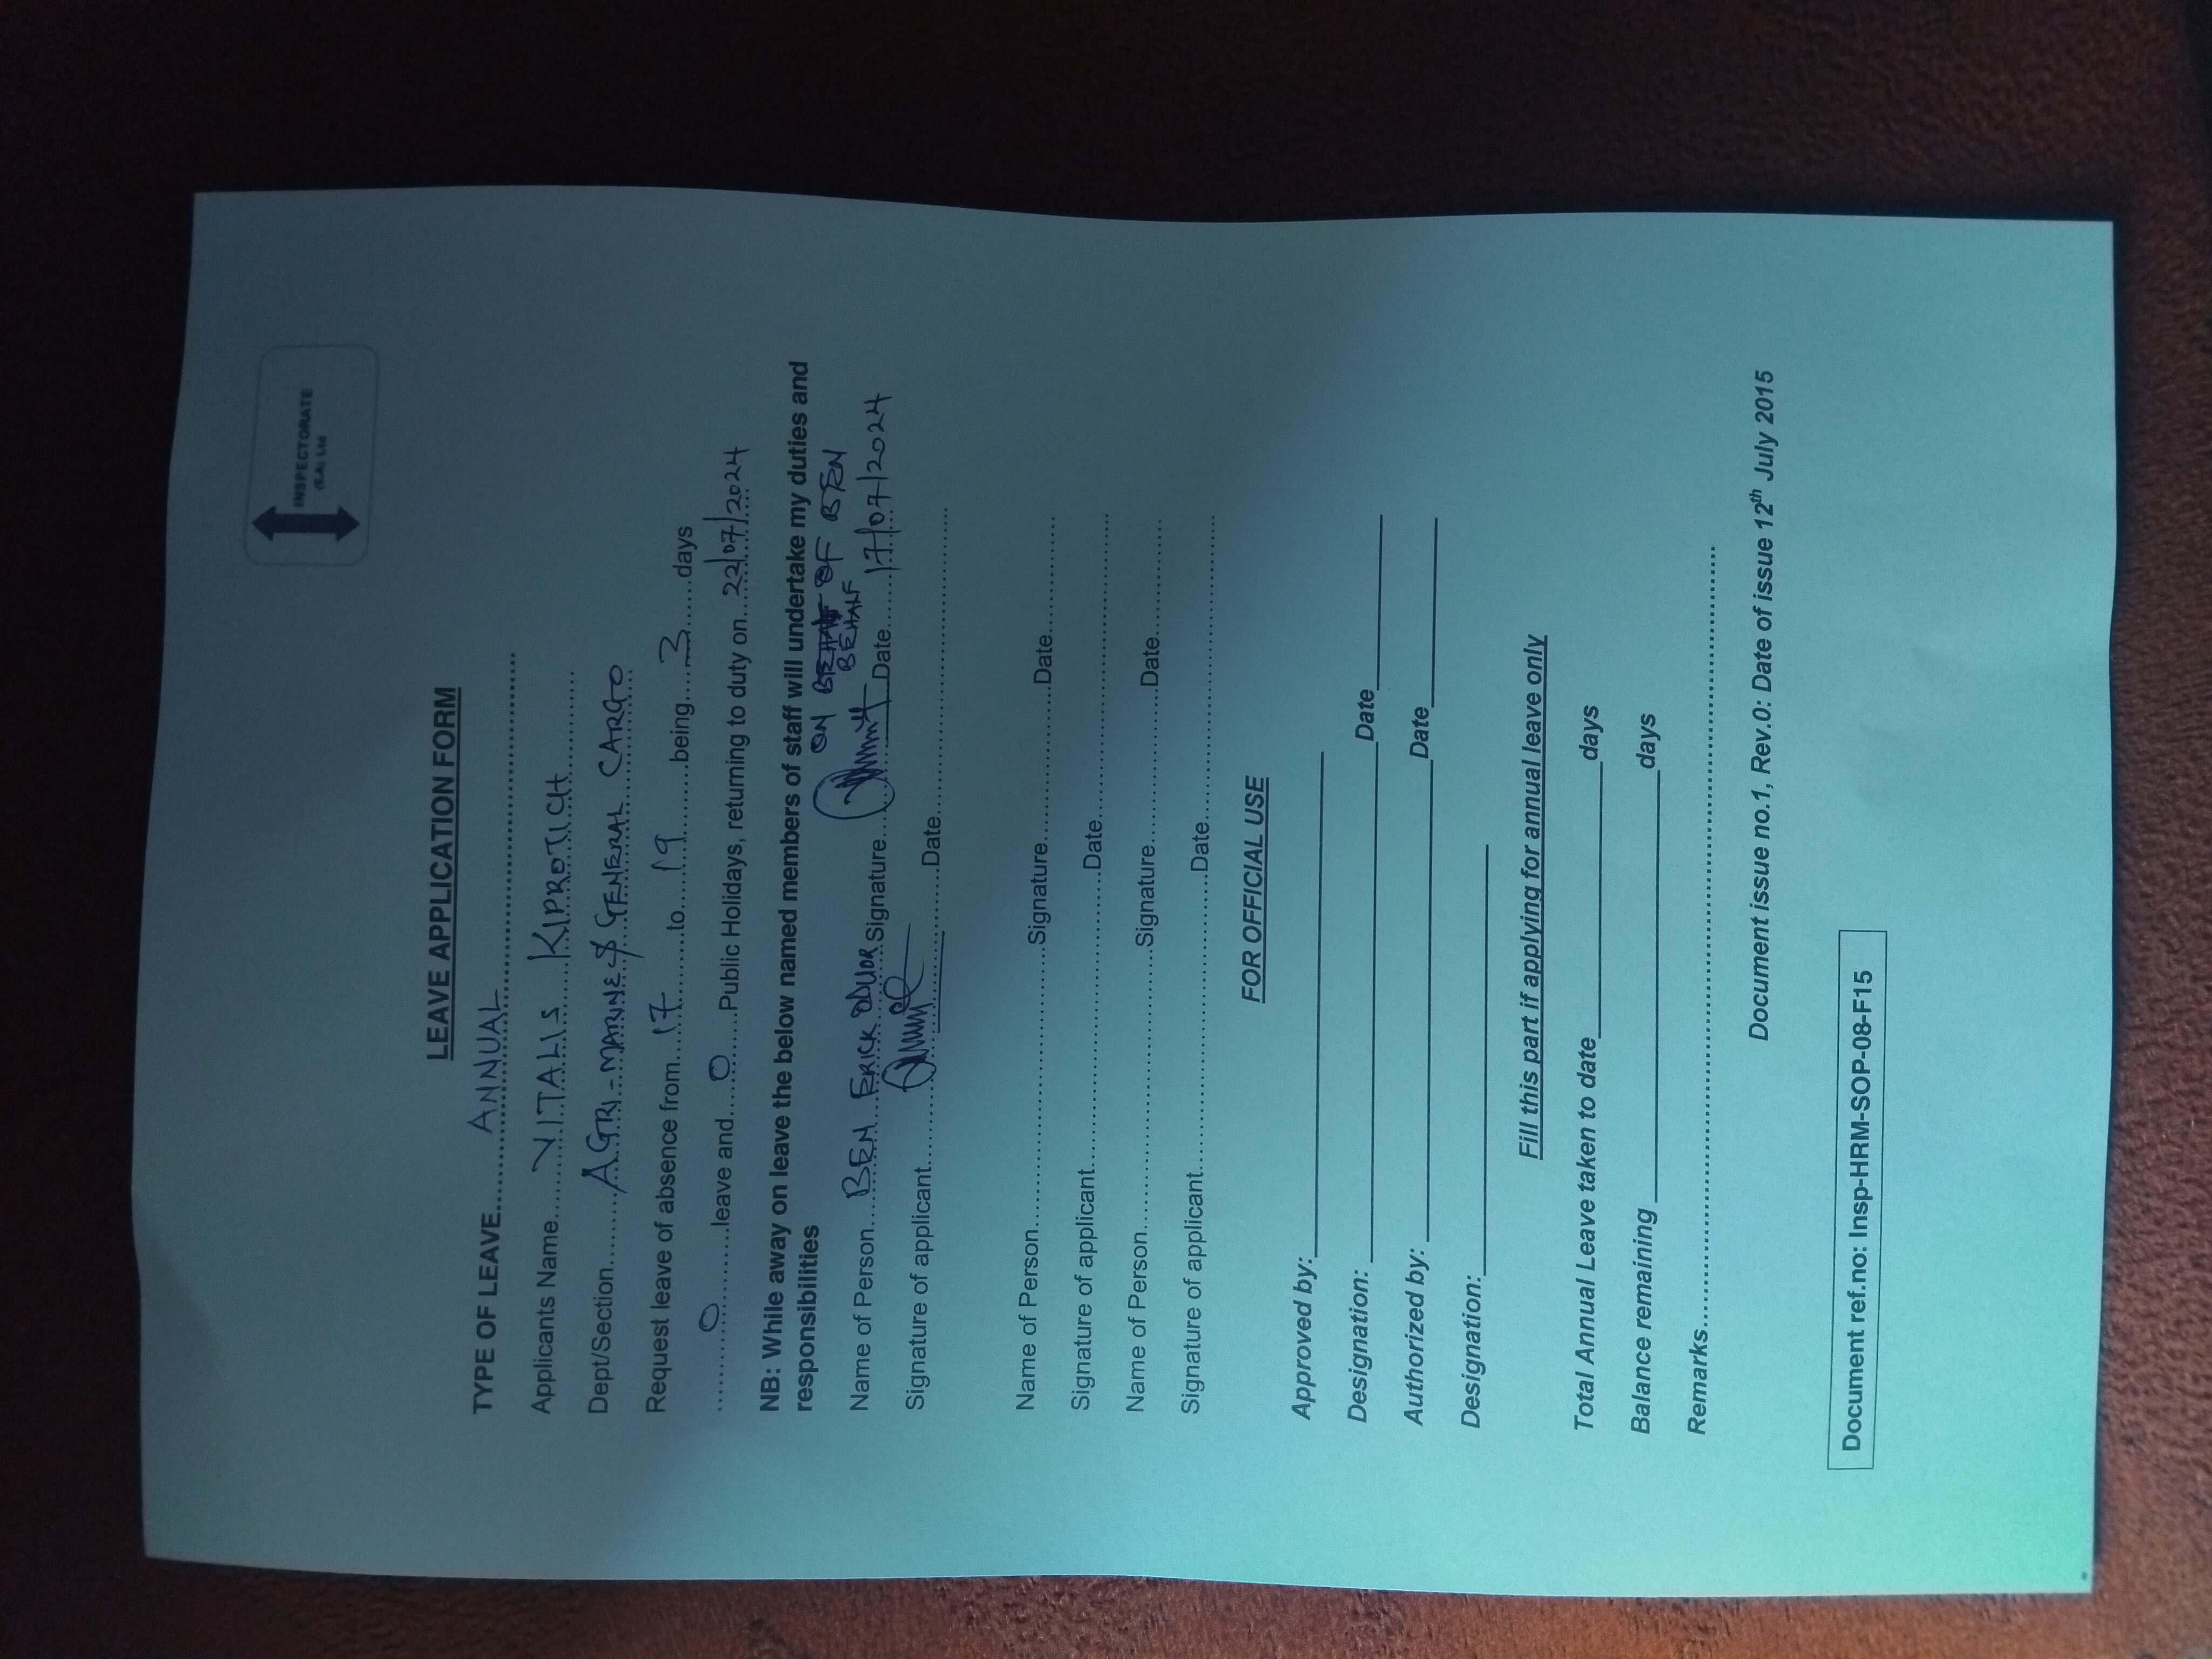 INSPECTORATE
(E.A) Ltd
LEAVE APPLICATION FORM
TYPE OF LEAVE.........ANNUAL.............................................
Applicants Name......VITALIS KIPROTICH..............
Dept/Section.........AGRI-MARINE & GENERAL CARGO
Request leave of absence from....17.........to.....19.........being....3......days
............0..........leave and....0......Public Holidays, returning to duty on...22/07/2024
NB: While away on leave the below named members of staff will undertake my duties and
responsibilities
ON OF BEN
BEHALF
Name of Person....BEN ERICK ODUOR Signature....................Date.......17/07/2024
Signature of applicant........................................Date............................................
Name of Person.......................................Signature......................Date................
Signature of applicant.........................................Date...........................................
Name of Person.......................................Signature......................Date................
Signature of applicant.........................................Date...........................................
FOR OFFICIAL USE
Approved by:____________________
Designation: ____________________Date________
Authorized by: ____________________Date________
Designation:____________________
Fill this part if applying for annual leave only
Total Annual Leave taken to date____________________days
Balance remaining ____________________days
Remarks....................................................................................
Document issue no.1, Rev.0: Date of issue 12th July 2015
Document ref.no: Insp-HRM-SOP-08-F15